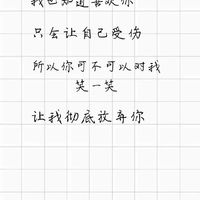 我也知道喜欢你
只会让自己受伤
所以你可不可以对我
笑一笑
让我彻底放弃你